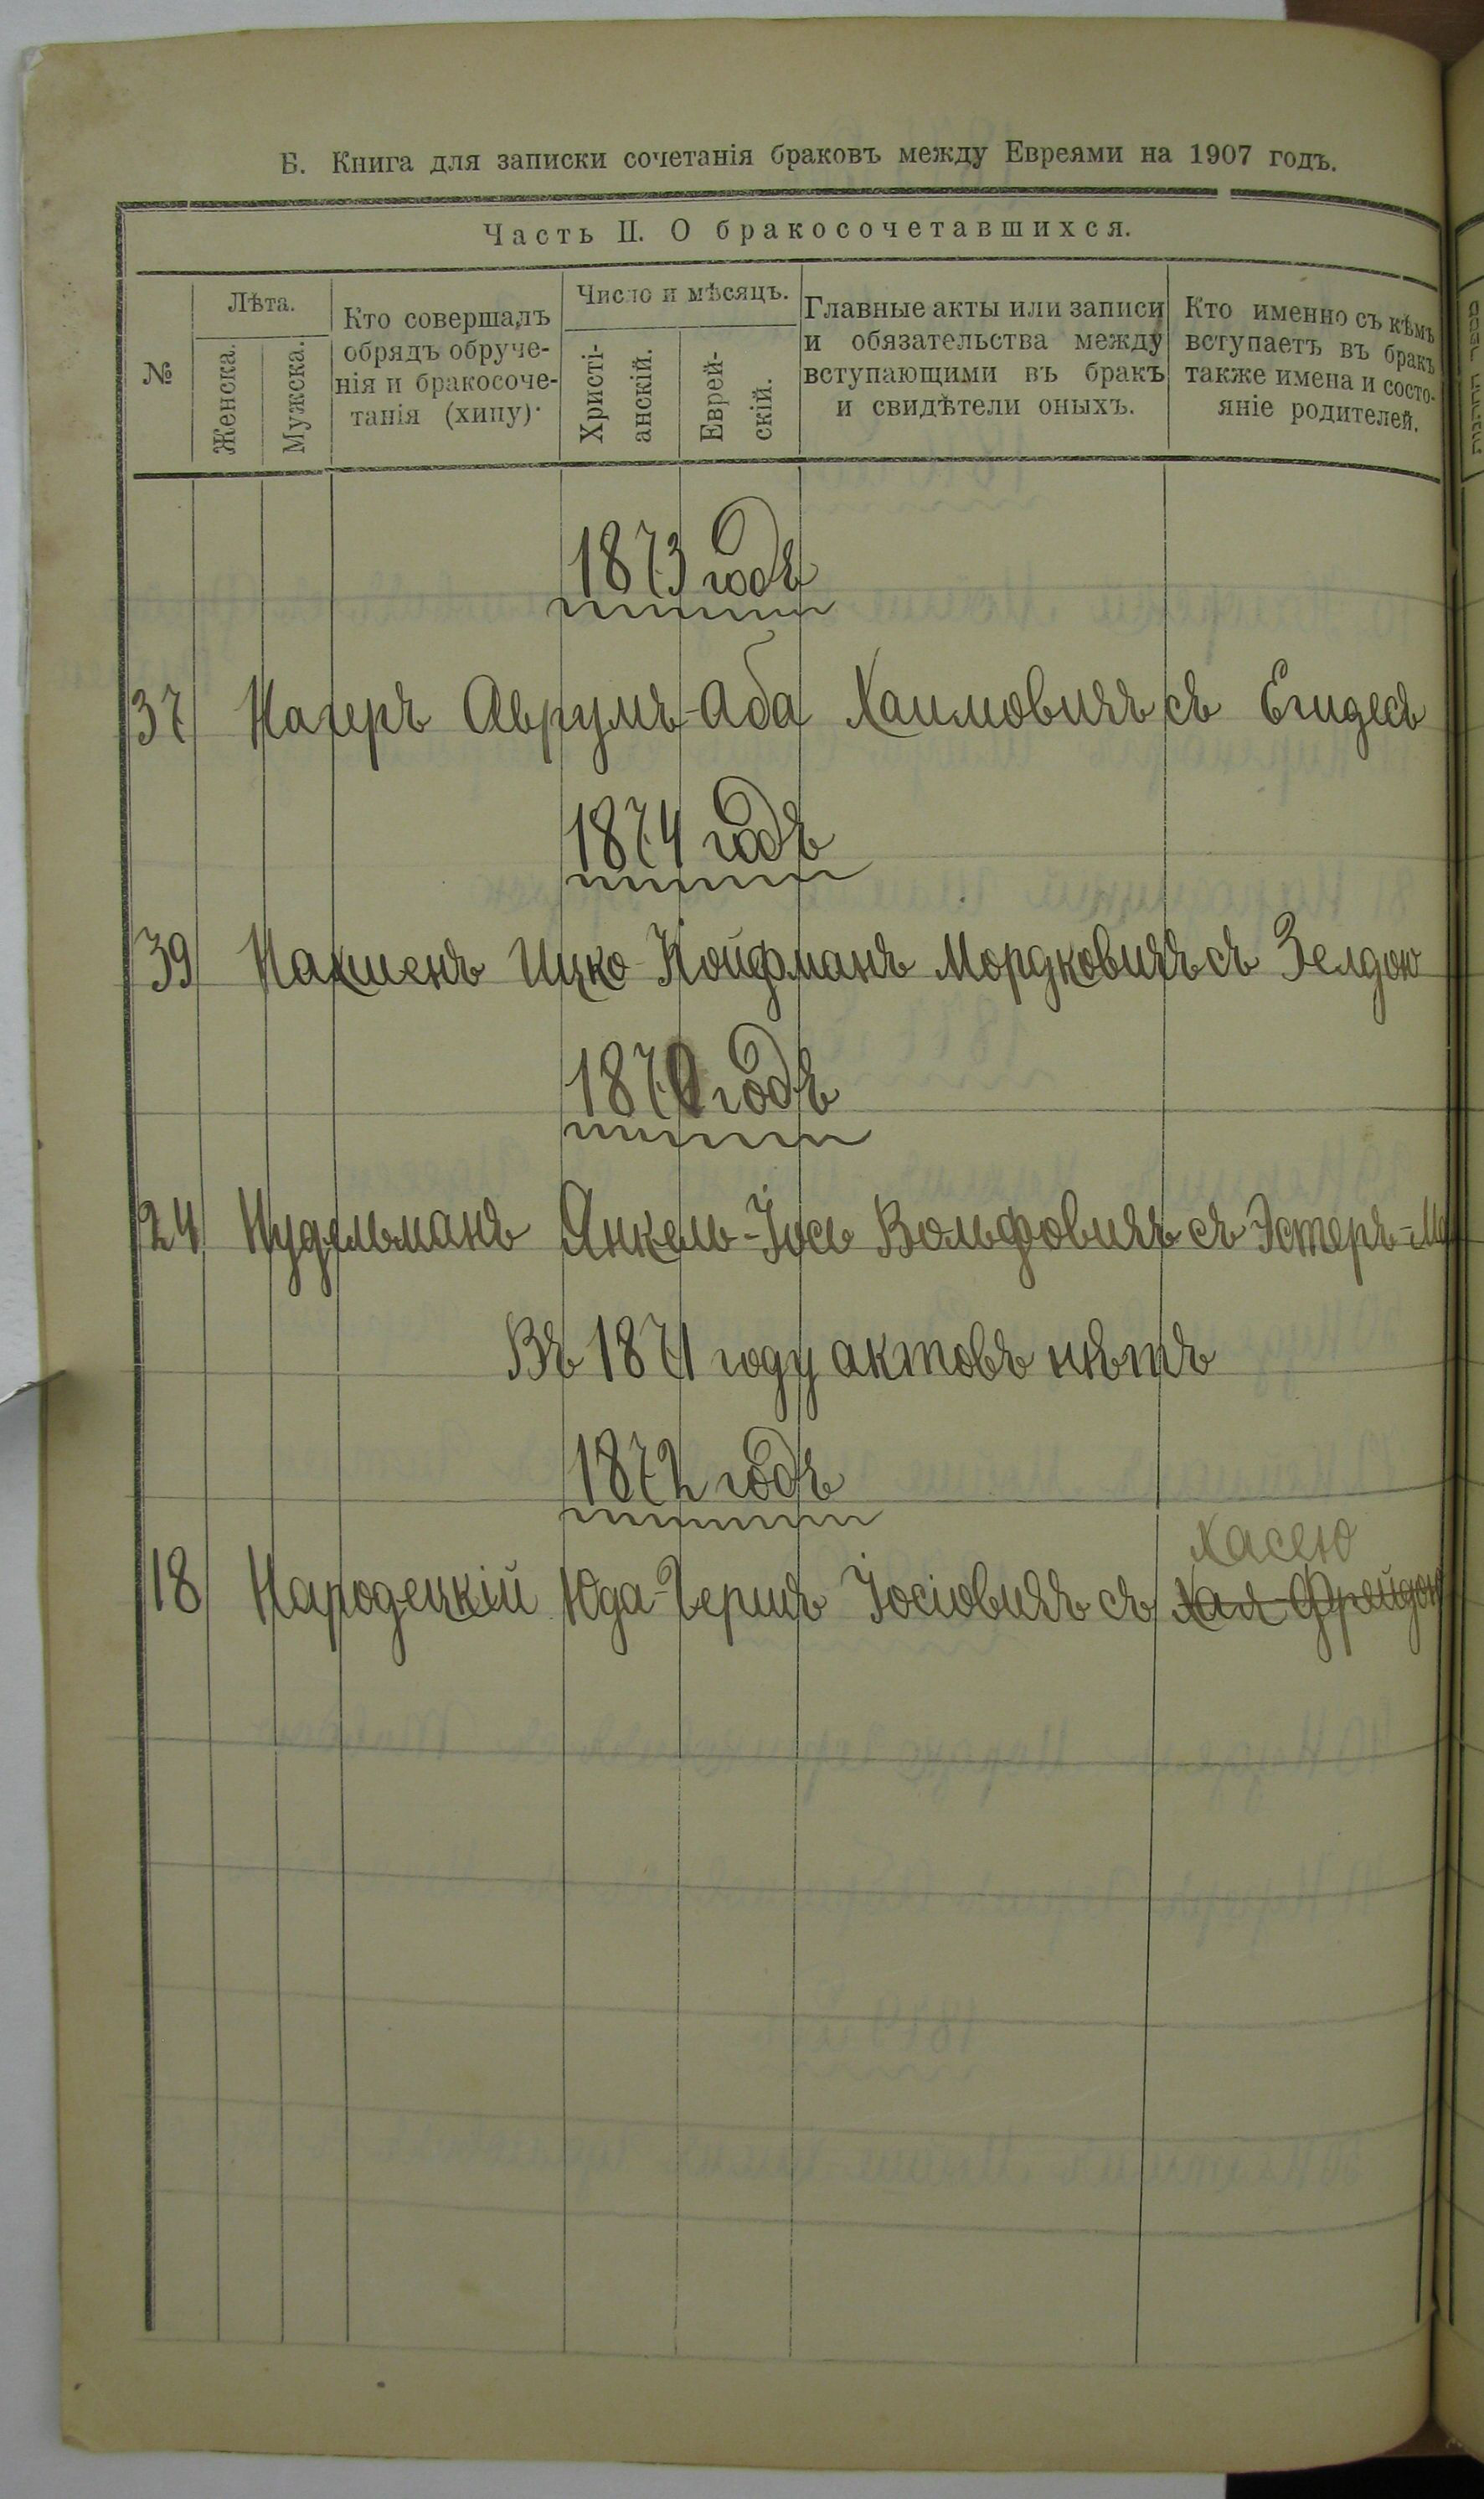 Б. Книга для записки сочетанія браковъ между Евреями на 1907 годъ.
Часть II. О бракосочетавшихся.
№
Лѣта.
Женска.
Мужска.
Кто совершалъ
обрядъ обруче-
нія и бракосоче-
танія (хипу).
Число и мѣсяцъ.
Христі-
анскій.
Еврей-
скій.
Главные акты или записи
и обязательства между
вступающими въ бракъ
и свидѣтели оныхъ.
Кто именно съ кѣмъ
вступаетъ въ бракъ
также имена и состо-
яніе родителей.
1873 годъ
37 Нагеръ Аврумъ-Аба Хаимовичъ съ Егидесъ
1874 годъ
39 Нахшенъ Ицко-Койфманъ Мордковичъ съ Зелдою
1870 годъ
24 Нудельманъ Янкель-Іось Вольфовичъ съ Эстеръ-Ма
Въ 1871 году актовъ нѣтъ
1872 годъ
Хасею
18 Народецкій Юда-Гершъ Іосіовичъ съ Хая-Фрейдою